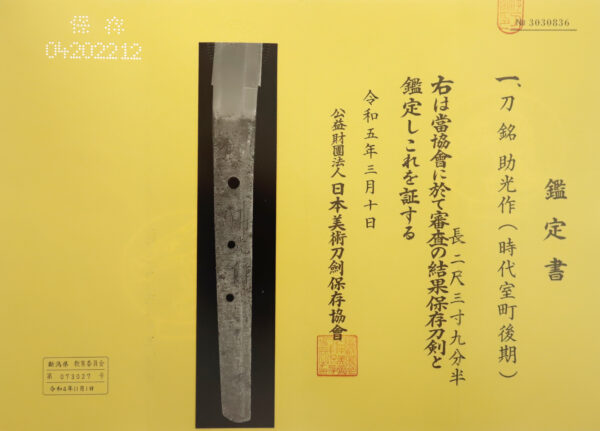 № 3030836
鑑定書
一、刀 銘 助光作(時代室町後期)
長 二尺三寸九分半
右は當協會に於て審査の結果保存刀剣と
鑑定しこれを証する
令和五年三月十日
公益財團法人 日本美術刀剣保存協會
保存
04202212
新潟県 教育委員会
第 073027 号
令和4年11月1日